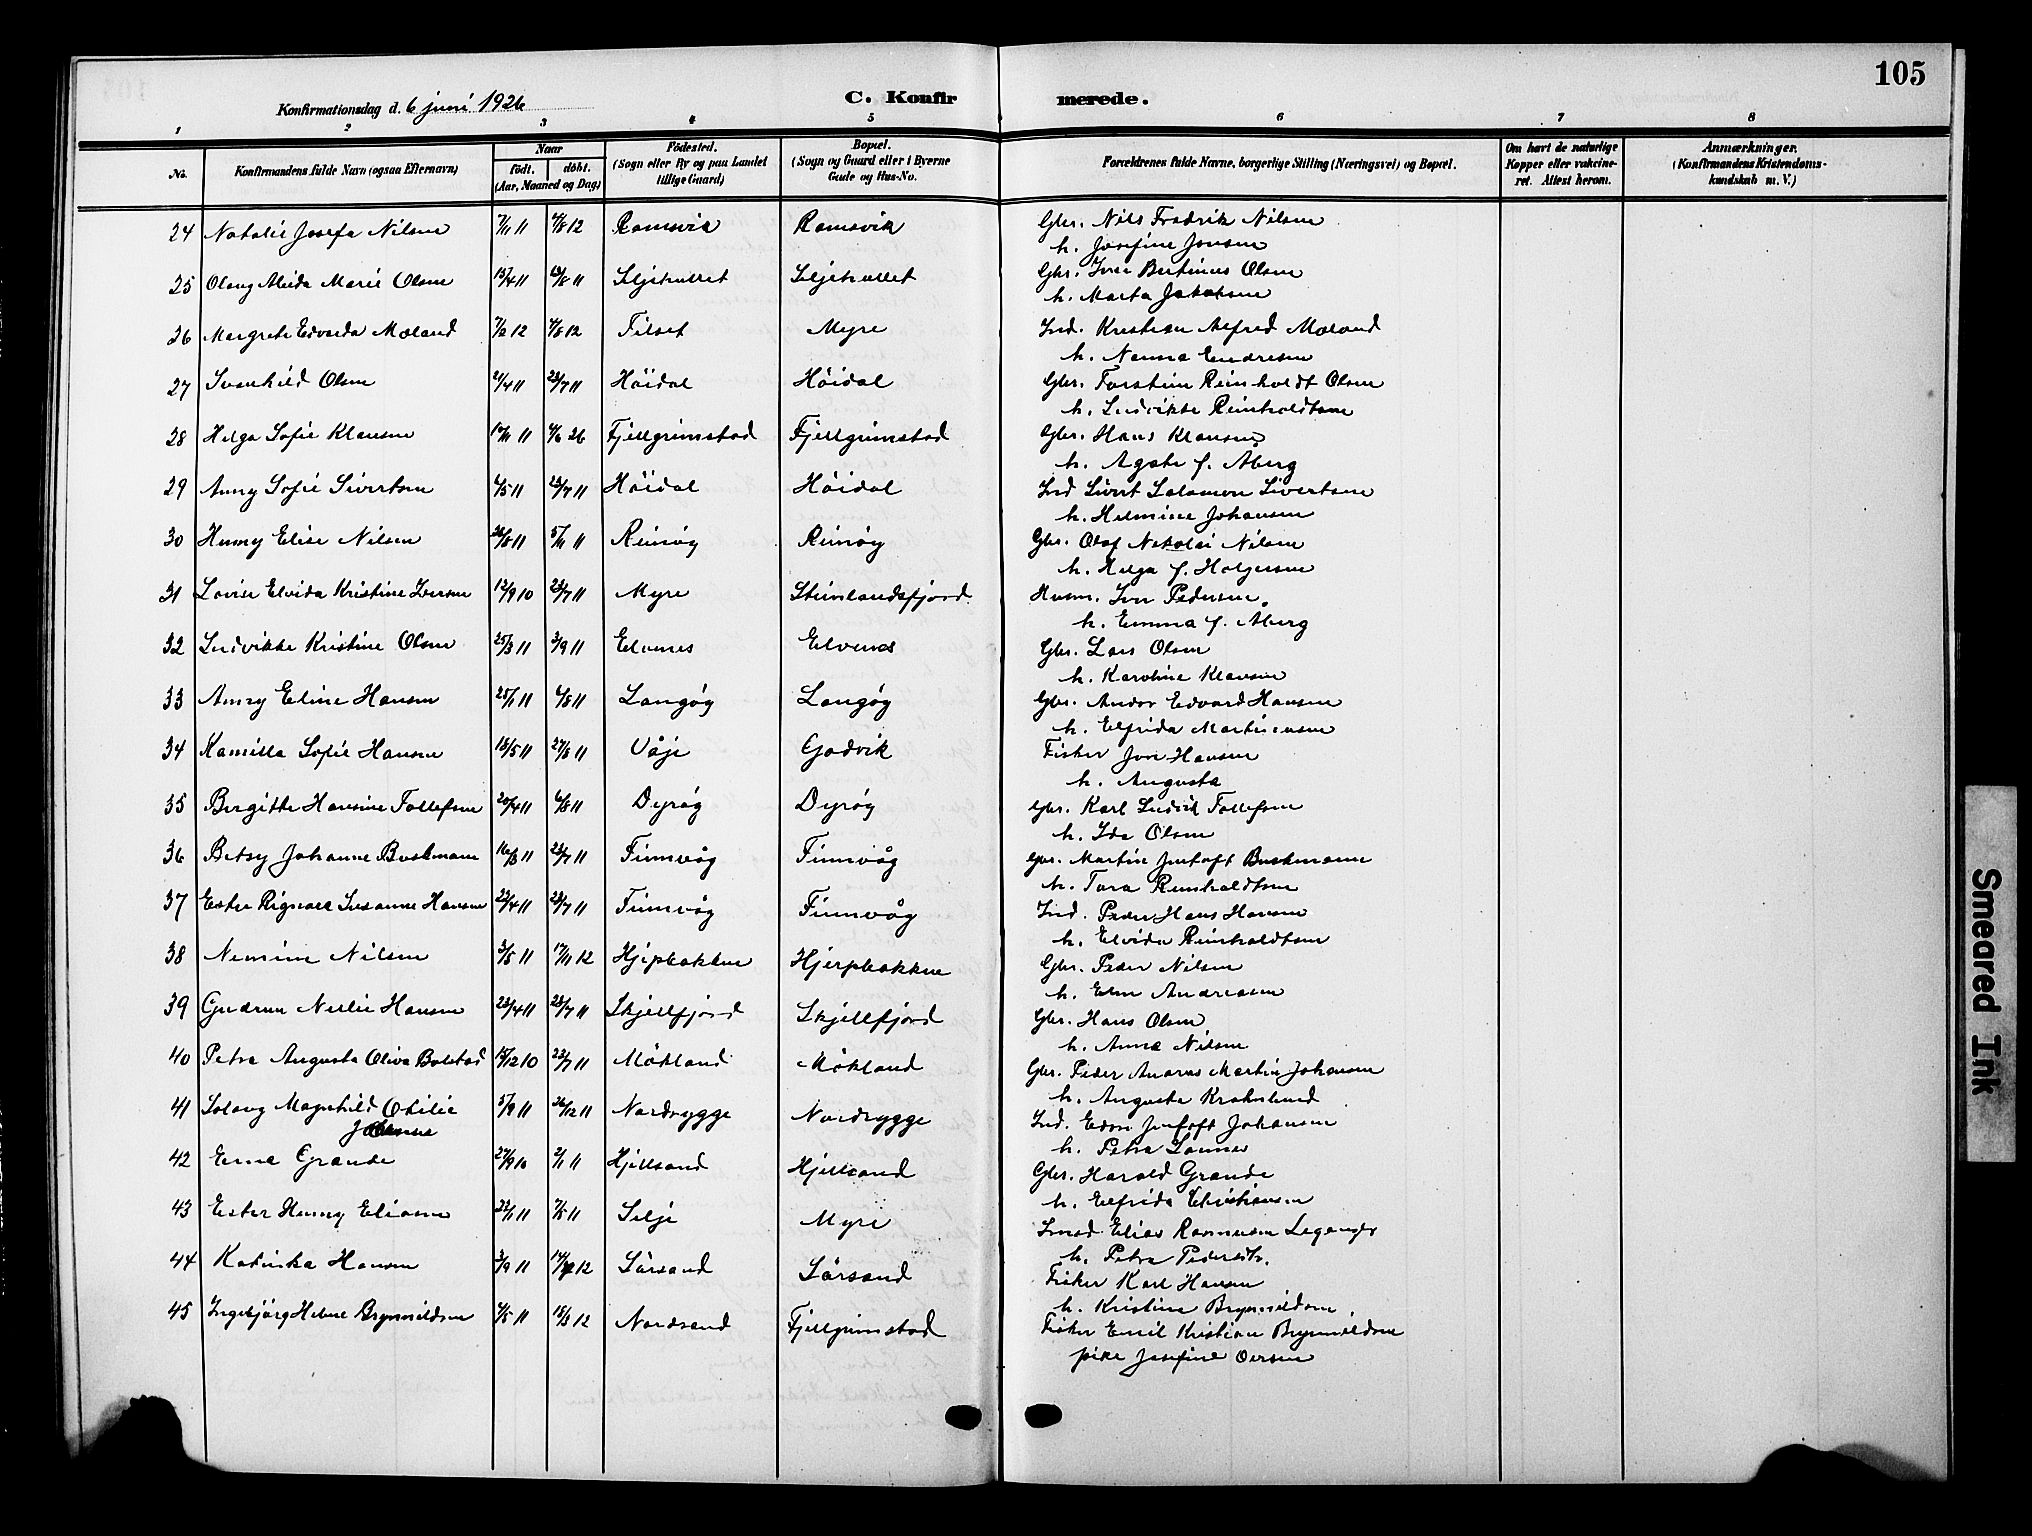 105
Konfirmationsdag d. 6 juni 1926 C. Konfirmerede.
1 2 3 4 5 6 7 8
No. Konfirmandens fulde Navn (ogsaa Efternavn) Naar födt. döbt. (Aar, Maaned og Dag) Födested. (Sogn eller By og paa Landet tillige Gaard) Bopæl. (Sogn og Gaard eller i Byerne Gade og Hus-No. Forældrenes fulde Navne, borgerlige Stilling (Næringsvei) og Bopæl. Om havt de naturlige Kopper eller vaccineret. Attest herom. Anmærkninger. (Konfirmandens Kristendomskundskab m. V.)
24 Natalie Josefa Nilsen 7/11 11 4/8 12 Ramsvik Ramsvik Gbr. Nils Fredrik Nilsen
h. Josefine Jensen
25 Olaug Alvida Marie Olsen 15/4 11 Seljehullet Seljehullet Gbr. Iver Bertinus Olsen
h. Marta Jakobsen
26 Margrete Edvarda Mæland 7/2 12 4/8 12 Tilset Myre Ind. Kristian Alfred Mæland
h. Nanna Endresen
27 Svanhild Olsen 21/4 11 23/7 11 Höidal Höidal Gbr. Torstein Reinholdt Olsen
h. Ludvikke Reinholdtsen
28 Helga Sofie Klausen 14/11 11 4/6 26 Fjellgrimstad Fjellgrimstad Gbr. Hans Klausen
h. Agate f. Åberg
29 Anny Sofie Sivertsen 4/5 11 23/7 11 Höidal Höidal Ind Sivert Salamon Sivertsen
h. Helmine Johansen
30 Henny Elise Nilsen 26/8 11 5/11 11 Reinøy Reinøy Gbr. Olaf Nikolai Nilsen
h. Helga f. Holgersen
31 Lovise Elvida Kristine Iversen 12/9 10 23/7 11 Myre Steinlandsfjord Husm. Iver Pedersen
h. Emma f. Åberg
32 Ludvikke Kristine Olsen 25/3 11 3/9 11 Elvenes Elvenes Gbr. Lars Olsen
h. Karoline Klausen
33 Anny Eline Hansen 25/1 11 6/8 11 Langøy Langøy Gbr. Andor Edvard Hansen
h. Elfrida Martinussen
34 Kamilla Sofie Hansen 18/5 11 27/8 11 Våje Gadvik Fisker Jon Hansen
h. Augusta
35 Birgitte Hansine Tollefsen 20/4 11 6/8 11 Dyrøy Dyrøy Gbr. Karl Ludvik Tollefsen
h. Ida Olsen
36 Betsy Johanne Buskmann 16/3 11 23/7 11 Finnvåg Finnvåg Gbr. Martin Jentoft Buskmann
h. Tora Reinholdtsen
37 Ester Susanne Hansen 22/4 11 23/7 11 Finnvåg Finnvåg Ind. Peder Hans Hansen
h. Elvida Reinholdtsen
38 Nilsen 3/8 11 17/11 12 Hjerpbakken Hjerpbakken Gbr. Peder Nilsen
h. Elen Andreasen
39 Gudrun Nellie Hansen 23/4 11 23/7 11 Skjellfjord Skjellfjord Gbr. Hans Olsen
h. Anna Nilsen
40 Petra Augusta Oliva Bolstad 15/12 10 23/7 11 Mökland Mökland Gbr. Peder Anders Martin Johansen
h. Augusta
41 Solaug Magnhild Otilie Johansen 5/9 11 26/12 11 Nordrygge Nordrygge Ind. Jentoft Johansen
h. Petra
42 Erna Grande 27/9 10 2/1 11 Hjellsand Hjellsand Gbr. Harald Grande
h. Elfrida Christiansen
43 Ester Henny Eliasen 22/1 11 7/5 11 Selje Myre Elias Rasmussen Leganger
h. Petra Pedersdtr.
44 Katinka Hansen 3/9 11 Sörsand Sörsand Fisker Karl Hansen
h. Kristine Brynnildsen.
45 Ingebjörg Helene Brynnildsen 4/5 11 18/3 12 Nordsand Fjellgrimstad Fisker Emil Kristian Brynnildsen
pike Josefine Oersen
Smeared Ink